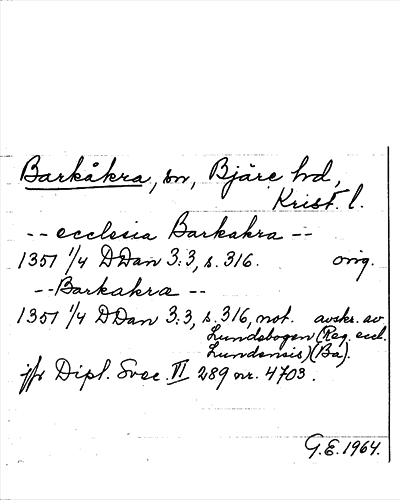 Barkåkra, sn, Bjäre hd,
Krist. l.
-- ecclesia Barkakra --
1351 1/4 DDan 3:3, s. 316. orig.
-- Barkakra --
1351 1/4 DDan 3:3, s. 316, not. avskr. av
Lundabogen (Reg. eccl.
Lundensis) (Ba).
jfr Dipl. Svec. VI 289 nr. 4703.
G.E. 1964.